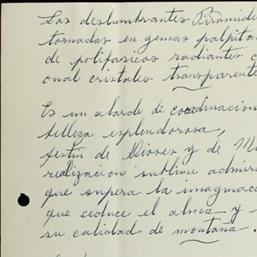 Las deslumbrantes Piramide
tornadas en gemas palpitan
de polifasicos radiantes c
cual cristales transparente
Es un alarde de coordinacion
belleza esplendorosa,
festin de Dioses y de M
realización sublime admira
que supera la imaginac
que seduce el alma y
su calidad de montana.